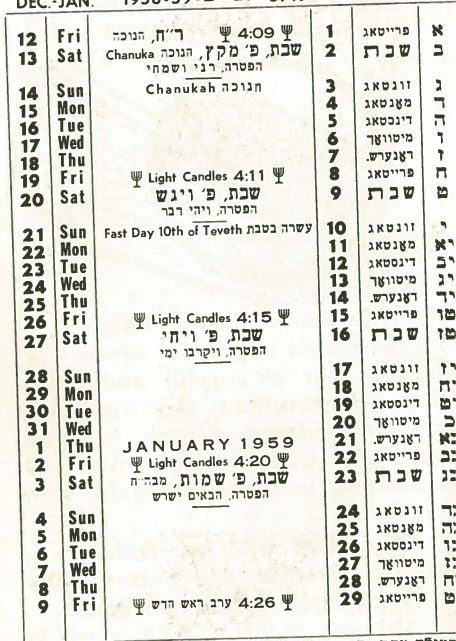 DEC.-JAN. 1958-59
12 Fri ר״ח, חנוכה 4:09 1 פרייטאג א
13 Sat Chanuka שבת, פ׳ מקץ, חנוכה 2 שבת ב
הפטרה, רני ושמחי
14 Sun Chanukah חנוכה 3 זונטאג ג
15 Mon 4 מאנטאג ד
16 Tue 5 דינסטאג ה
17 Wed 6 מיטוואך ו
18 Thu 7 דאנערש. ז
19 Fri Light Candles 4:11 8 פרייטאג ח
20 Sat שבת, פ׳ ויגש 9 שבת ט
הפטרה, ויהי דבר
21 Sun Fast Day 10th of Teveth עשרה בטבת 10 זונטאג י
22 Mon 11 מאנטאג יא
23 Tue 12 דינסטאג יב
24 Wed 13 מיטוואך יג
25 Thu 14 דאנערש. יד
26 Fri Light Candles 4:15 15 פרייטאג טו
27 Sat שבת, פ׳ ויחי 16 שבת טז
הפטרה, ויקרבו ימי
28 Sun 17 זונטאג יז
29 Mon 18 מאנטאג יח
30 Tue 19 דינסטאג יט
31 Wed 20 מיטוואך כ
JANUARY 1959
1 Thu 21 דאנערש. כא
2 Fri Light Candles 4:20 22 פרייטאג כב
3 Sat שבת, פ׳ שמות, מבה״ח 23 שבת כג
הפטרה, הבאים ישרש
4 Sun 24 זונטאג כד
5 Mon 25 מאנטאג כה
6 Tue 26 דינסטאג כו
7 Wed 27 מיטוואך כז
8 Thu 28 דאנערש. כח
9 Fri ערב ראש חדש 4:26 29 פרייטאג כט